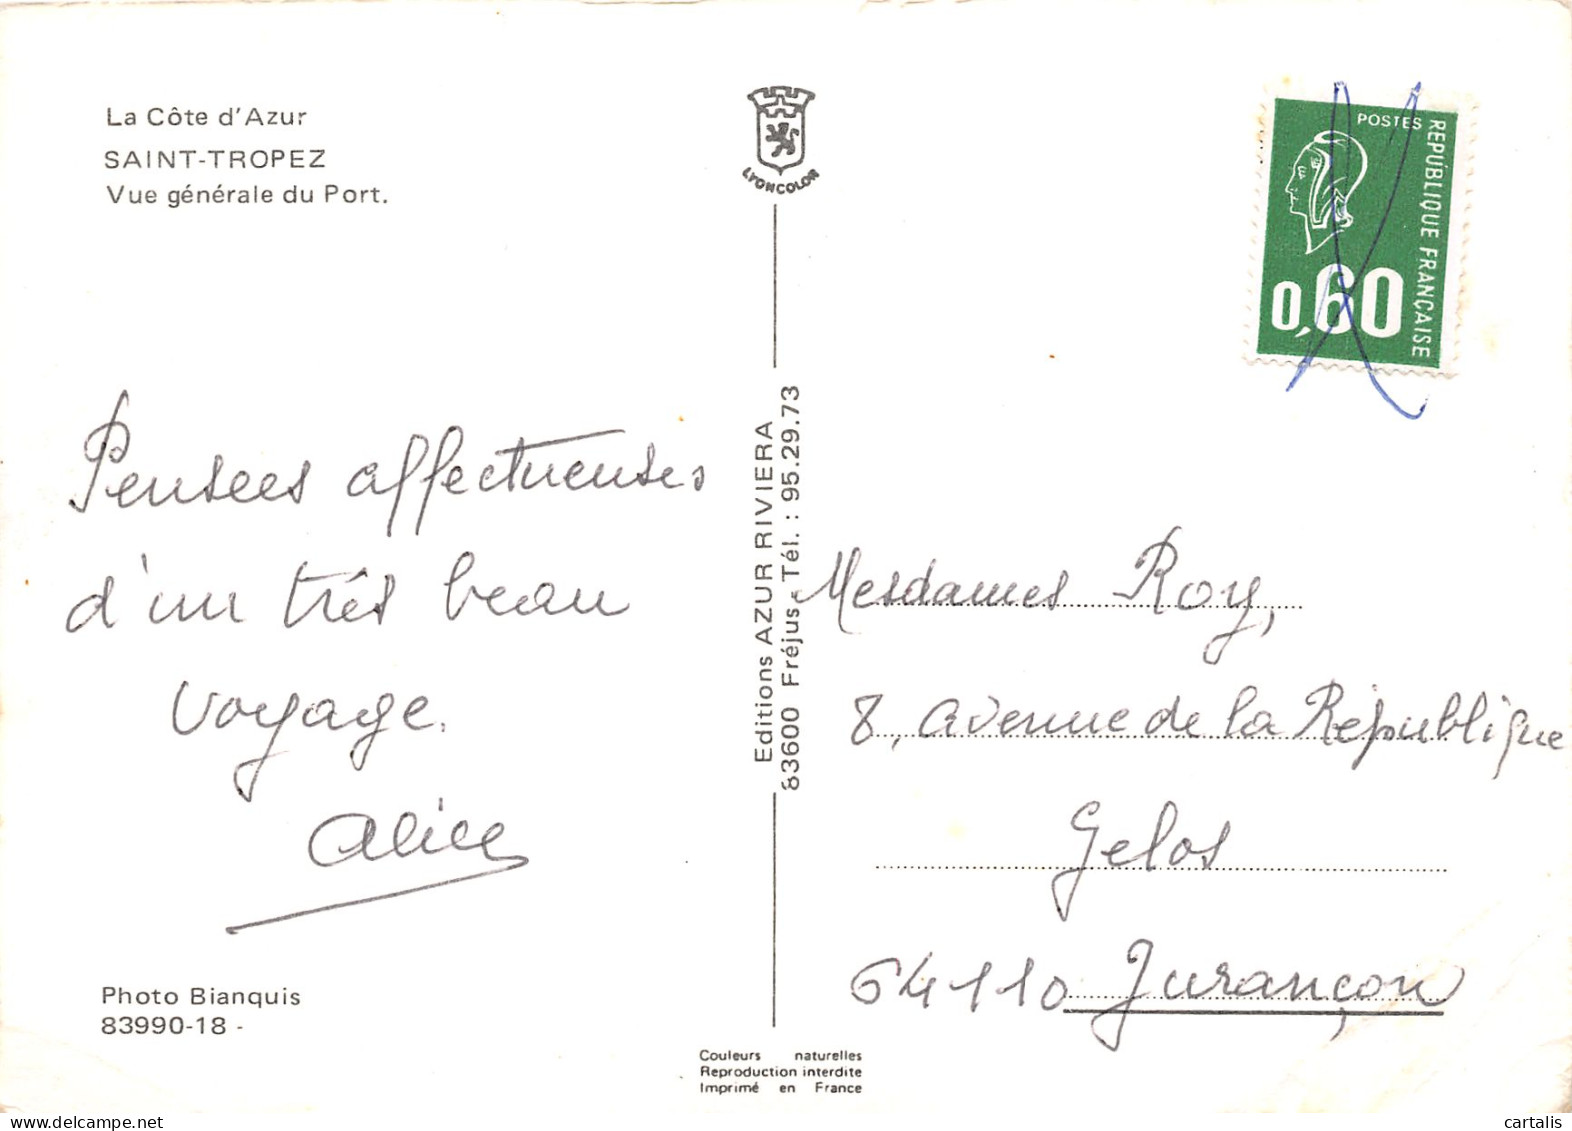 La Côte d'Azur
SAINT-TROPEZ
Vue générale du Port.
LYONCOLOR
POSTES
RÉPUBLIQUE FRANÇAISE
0,60
Pensees affectueuses
d'un très beau
voyage.
Alice
Photo Bianquis
83990-18 -
Editions AZUR RIVIERA
83600 Fréjus - Tél. : 95.29.73
Mesdames Roy,
8, avenue de la République
Gelos
64110 Jurançon
Couleurs naturelles
Reproduction interdite
Imprimé en France
cartalis